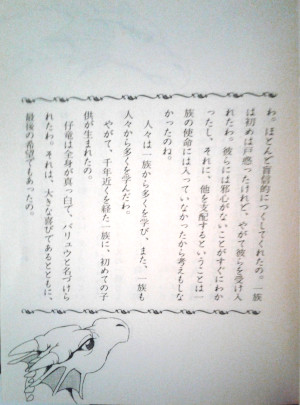 わ。ほとんど盲信的につくしてくれたの。一族
は初めは戸惑ったけれど、やがて彼らを受け入
れたわ。彼らには邪心がないことがすぐにわか
ったし、それに、他を支配するということは一
族の使命には入っていなかったから考えもしな
かったのね。
人々は一族から多くを学び、また、一族も
人々から多くを学んだわ。
やがて、千年近くを経た一族に、初めての子
供が生まれたの。
仔竜は全身が真っ白で、バリュウと名づけら
れたわ。それは、大きな喜びであるとともに、
最後の希望でもあったの。